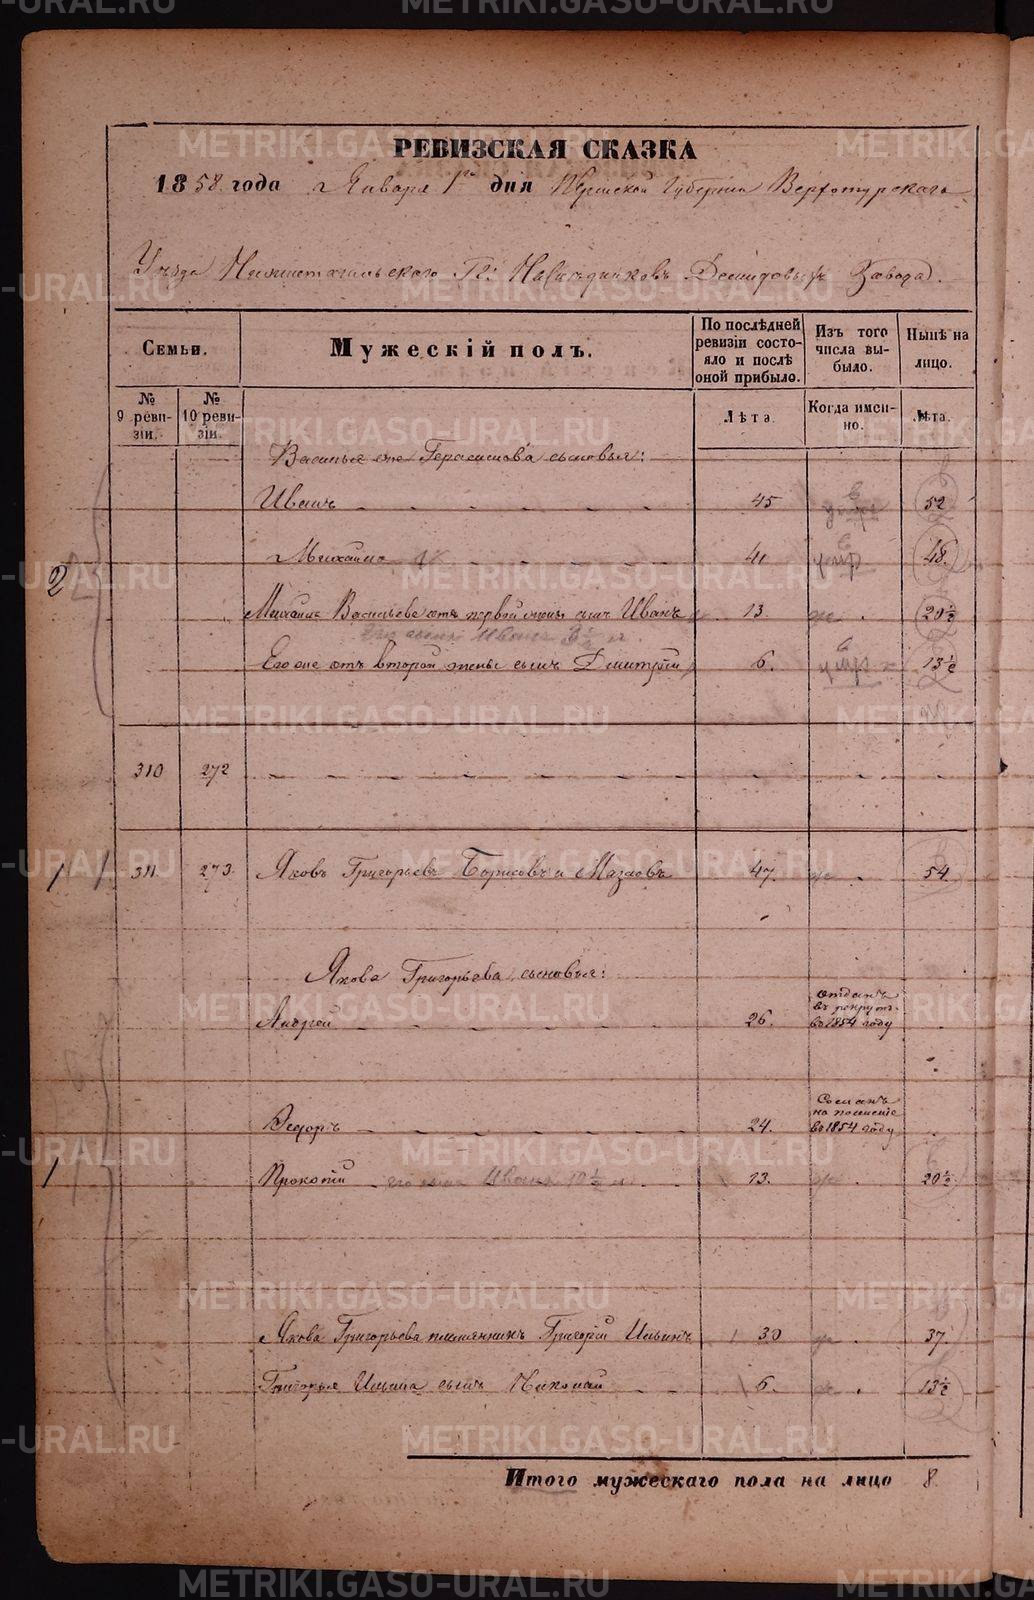 METRIKI.GASO-URAL.RU
РЕВИЗСКАЯ СКАЗКА
1858 года Января 1го дня Пермской Губерніи Верхотурскаго
Уѣзда Нижнетагильскаго Гг. Наслѣдниковъ Демидовыхъ Завода.
Семьи.
Мужескій полъ.
По послѣдней ревизіи состояло и послѣ оной прибыло.
Изъ того числа выбыло.
Нынѣ на лицо.
№ 9 ревизіи.
№ 10 ревизіи.
Лѣта.
Когда именно.
Лѣта.
Василья же Герасимова сыновья:
Иванъ 45 умре 52
2
Михайло 41 умре 48.
Михаила Васильева отъ первой жены сынъ Иванъ 13. 20½
его сынъ Иванъ 3½ л.
Его же отъ второй жены сынъ Дмитрій 6. умре 13½
310 272
1 311 273. Яковъ Григорьевъ Борисовъ и Мазаевъ 47. 54.
Якова Григорьева сыновья:
Андрей 26. отданъ въ рекрутъ въ 1854 году
Федоръ 24. Сосланъ на поселеніе въ 1854 году
1 Прокопій его сынъ Иванъ 10½ л. 13. 20½
Якова Григорьева племянникъ Григорій Ильинъ 30 37.
Григорья Ильина сынъ Николай 6. 13½
Итого мужескаго пола на лицо 8.